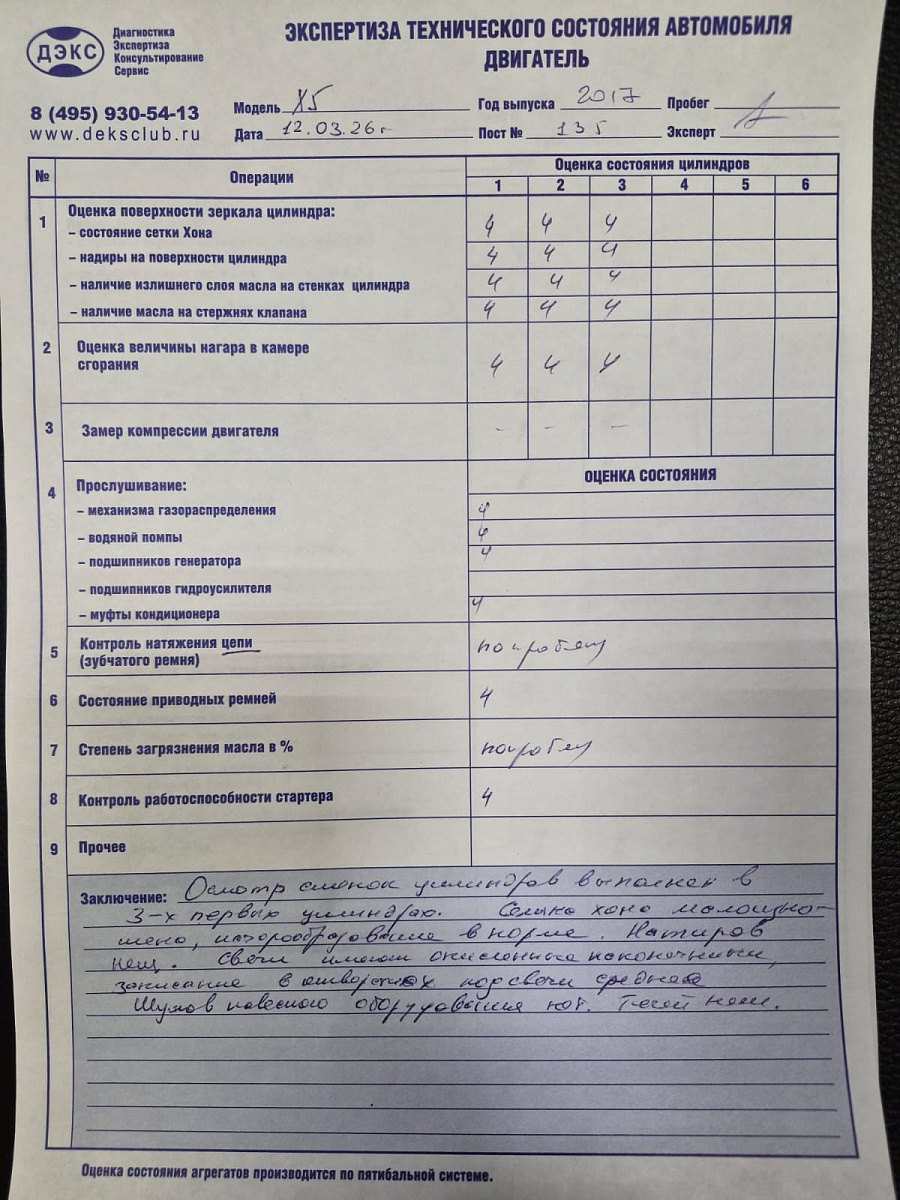 ДЭКС
Диагностика
Экспертиза
Консультирование
Сервис
ЭКСПЕРТИЗА ТЕХНИЧЕСКОГО СОСТОЯНИЯ АВТОМОБИЛЯ
ДВИГАТЕЛЬ
8 (495) 930-54-13
www.deksclub.ru
Модель X5 Год выпуска 2017 Пробег
Дата 12.03.26г Пост № 135 Эксперт
№ Операции Оценка состояния цилиндров
1 2 3 4 5 6
1 Оценка поверхности зеркала цилиндра:
– состояние сетки Хона 4 4 4
– надиры на поверхности цилиндра 4 4 4
– наличие излишнего слоя масла на стенках цилиндра 4 4 4
– наличие масла на стержнях клапана 4 4 4
2 Оценка величины нагара в камере
сгорания 4 4 4
3 Замер компрессии двигателя – – –
ОЦЕНКА СОСТОЯНИЯ
4 Прослушивание:
– механизма газораспределения 4
– водяной помпы 4
– подшипников генератора 4
– подшипников гидроусилителя
– муфты кондиционера 4
5 Контроль натяжения цепи
(зубчатого ремня)
6 Состояние приводных ремней 4
7 Степень загрязнения масла в %
8 Контроль работоспособности стартера 4
9 Прочее
Заключение: Осмотр стенок цилиндров выполнен в
3-х первых цилиндрах. Сетка хона
в норме.
Свечи имеют окисленные наконечники,
в отверстиях под свечи среднее
Шумов навесного оборудования нет. Течей нет.
Оценка состояния агрегатов производится по пятибальной системе.